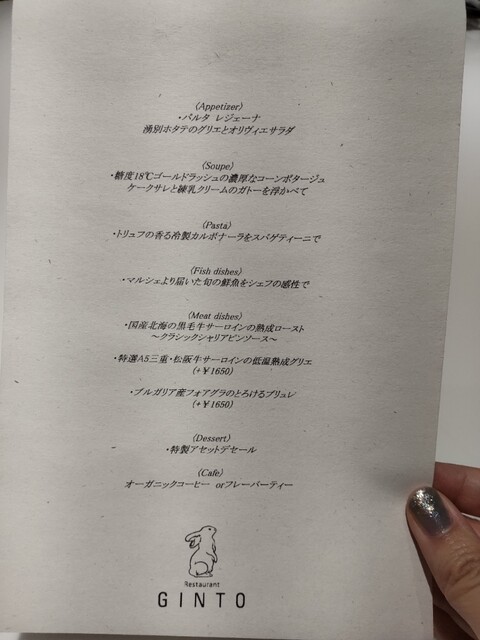 〈Appetizer〉
・バルタ レジェーナ
湧別ホタテのグリエとオリヴィエサラダ
〈Soupe〉
・糖度18℃ゴールドラッシュの濃厚なコーンポタージュ
ケークサレと練乳クリームのガトーを浮かべて
〈Pasta〉
・トリュフの香る冷製カルボナーラをスパゲティーニで
〈Fish dishes〉
・マルシェより届いた旬の鮮魚をシェフの感性で
〈Meat dishes〉
・国産北海の黒毛牛サーロインの熟成ロースト
～クラシックシャリアピンソース～
・特選A5三重・松阪牛サーロインの低温熟成グリエ
(+￥1650)
・ブルガリア産フォアグラのとろけるブリュレ
(+￥1650)
〈Dessert〉
・特製アセットデセール
〈Cafe〉
オーガニックコーヒー orフレーバーティー
Restaurant
GINTO